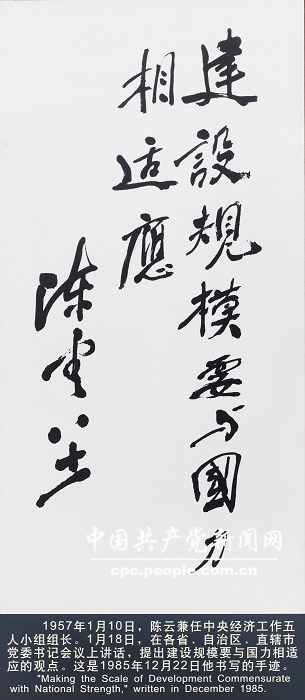 建設規模要与國力
相适應
陈云
中国共产党新闻网
cpc.people.com.cn
1957年1月10日，陈云兼任中央经济工作五
人小组组长。1月18日，在各省、自治区、直辖市
党委书记会议上讲话，提出建设规模要与国力相适
应的观点。这是1985年12月22日他书写的手迹。
"Making the Scale of Development Commensurate
with National Strength," written in December 1985.